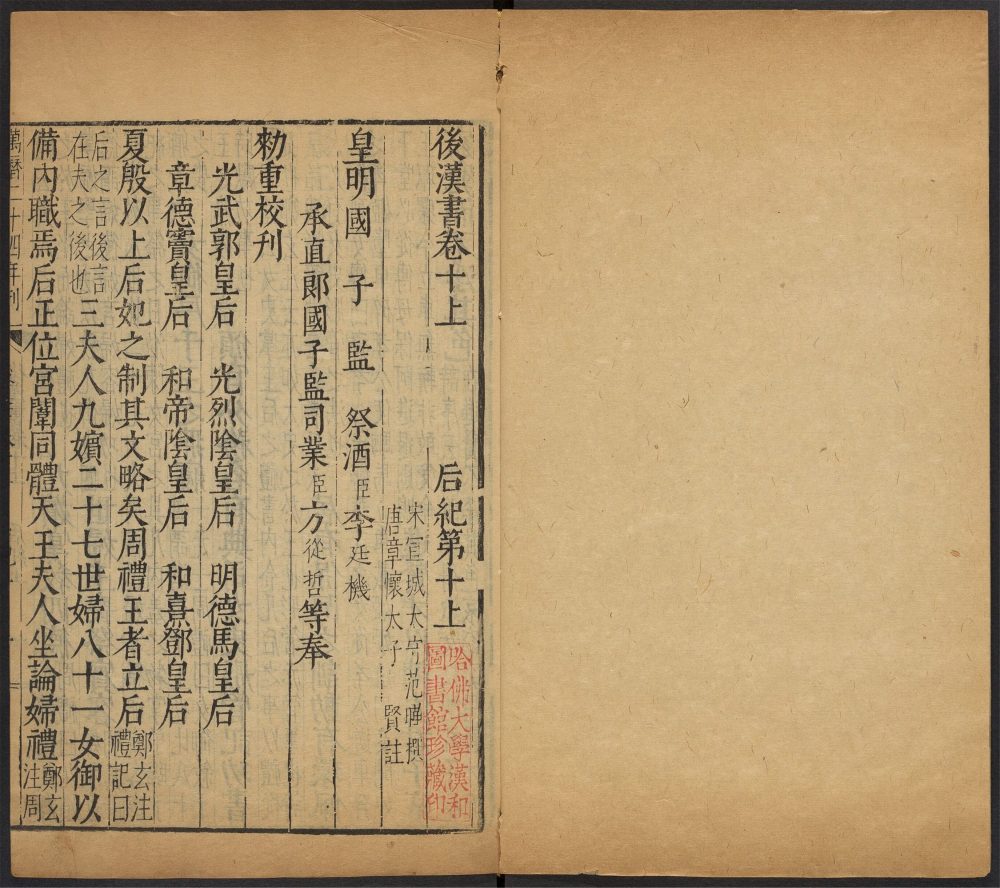 後漢書卷十上 后紀第十上
宋宣城太守范曄撰
唐章懷太子賢註
皇明國子監祭酒臣李廷機
承直郎國子監司業臣方從哲等奉
勑重校刊
光武郭皇后 光烈陰皇后 明德馬皇后
章德竇皇后 和帝陰皇后 和熹鄧皇后
夏殷以上后妃之制其文略矣周禮王者立后鄭玄注禮記曰
后之言後言在夫之後也三夫人九嬪二十七世婦八十一女御以
備內職焉后正位宮闈同體天王夫人坐論婦禮鄭玄注周
萬曆二十四年刊
哈佛大學漢和
圖書館珍藏印